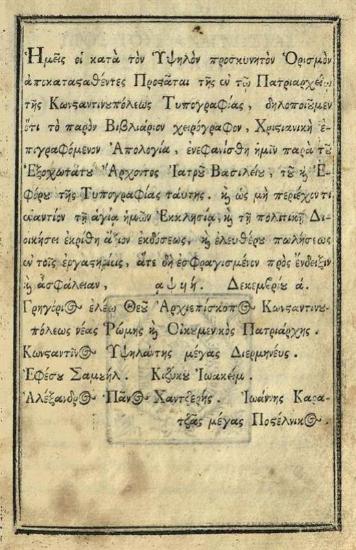 Ἡμεῖς οἱ κατὰ τὸν Ὑψηλὸν προσκυνητὸν Ὁρισμὸν
ἀποκαταϛαθέντες Προϛάται τῆς ἐν τῷ Πατριαρχείῳ
τῆς Κωνϛαντινȣπόλεως Τυπογραφίας, δηλοποιȣ͂μεν
ὅτι τὸ παρὸν Βιβλιάριον χειρόγραφον, Χριϛιανικὴ ἐ-
πιγραφόμενον Ἀπολογία, ἐνεφανίσθη ἡμῖν παρὰ τȣ͂
Ἐξοχωτάτȣ Ἄρχοντος Ἰατρȣ͂ Βασιλείȣ, τȣ͂ ϗ Ἐ-
φόρȣ τῆς Τυπογραφίας ταύτης. ϗ ὡς μὴ περιέχον τι
ἐναντίον τῇ ἁγίᾳ ἡμῶν Ἐκκλησίᾳ, ϗ τῇ πολιτικῇ Δι-
οικήσει ἐκρίθη ἄξιον ἐκδόσεως, ϗ ἐλευθέρȣ πωλήσεως
ἐν τοῖς ἐργαϛηρίοις, ἅτε δὴ ἐσφραγισμένον πρὸς ἔνδειξιν
ϗ ἀσφάλειαν, αψϟή. Δεκεμβρίȣ ά.
Γρηγόριος ἐλέῳ Θεȣ͂ Ἀρχιεπίσκοπος Κωνϛαντινȣ-
πόλεως νέας Ῥώμης ϗ Οἰκȣμενικὸς Πατριάρχης.
Κωνϛαντῖνος Ὑψηλάντης μέγας Διερμηνεύς.
Ἐφέσȣ Σαμȣήλ. Κιζίκȣ Ἰωακείμ.
Ἀλέξανδρος Πάνος Χαντζερῆς. Ἰωάννης Καρα-
τζᾶς μέγας Ποϛέλνικος.